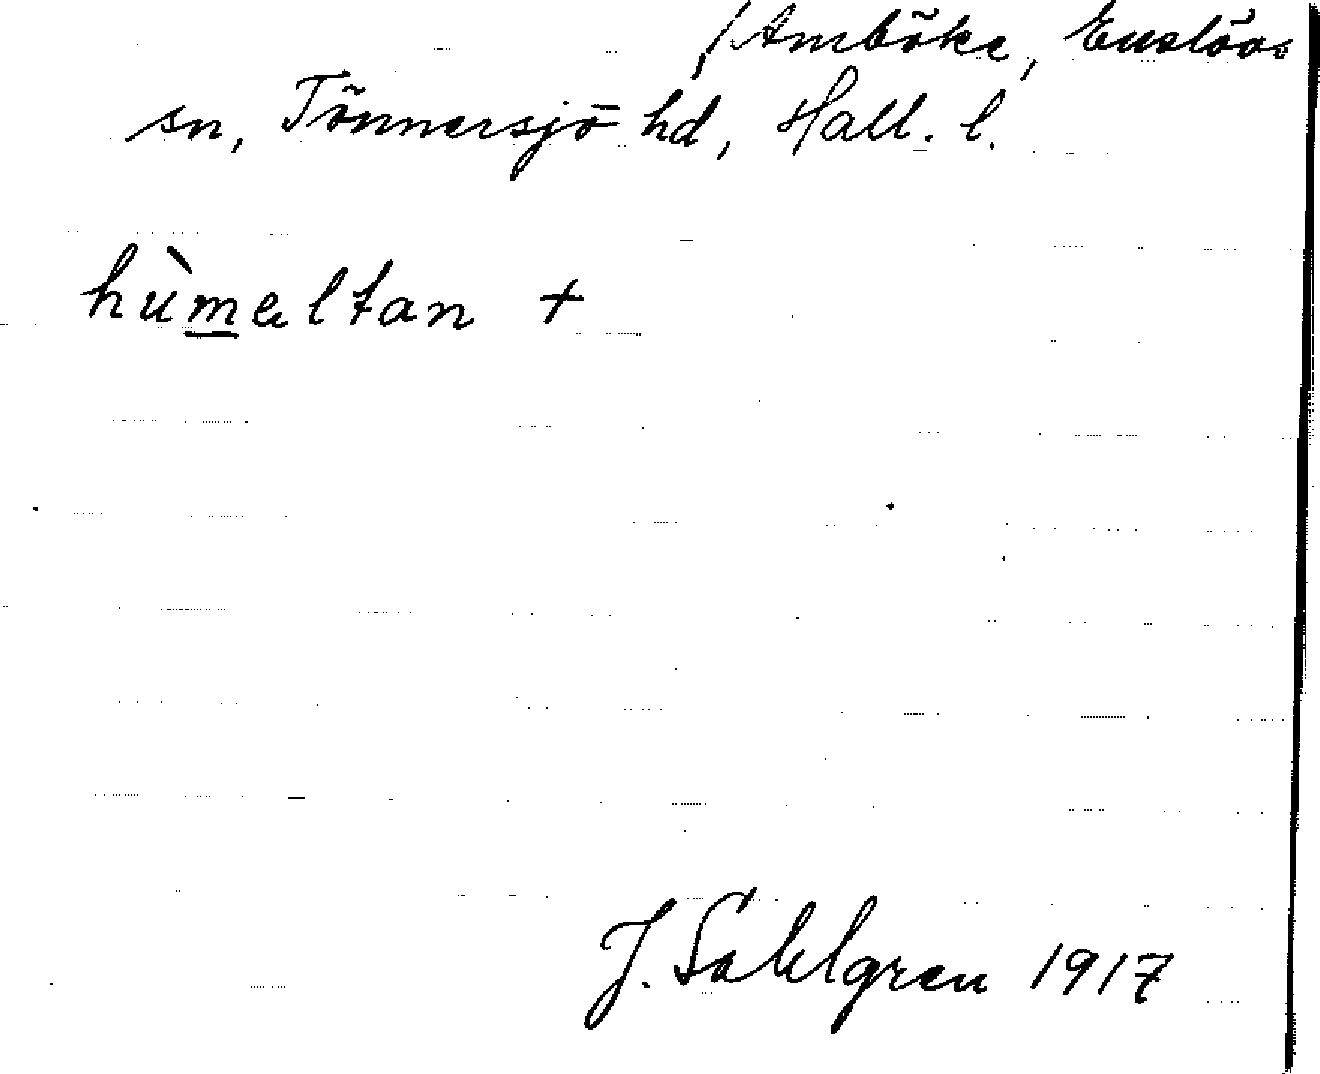 /Amböke, Enslövs
sn, Tönnersjö hd, Hall. l.
hùmeltan +
J. Sahlgren 1917